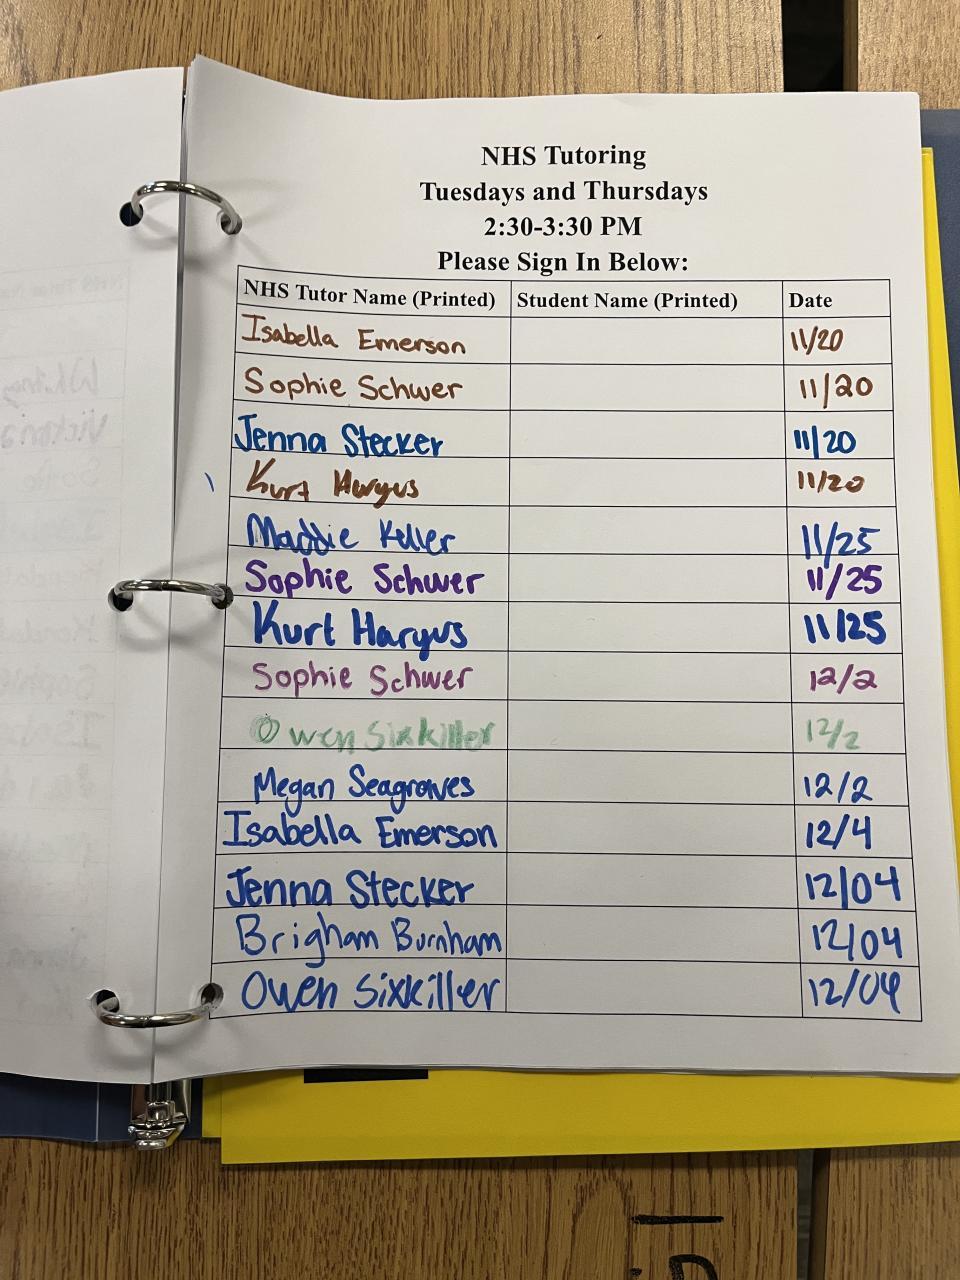 NHS Tutoring
Tuesdays and Thursdays
2:30-3:30 PM
Please Sign In Below:
NHS Tutor Name (Printed) Student Name (Printed) Date
Isabella Emerson 11/20
Sophie Schwer 11/20
Jenna Stecker 11/20
Kurt Hargus 11/20
Maddie Keller 11/25
Sophie Schwer 11/25
Kurt Hargus 11/25
Sophie Schwer 12/2
Owen Sixkiller 12/2
Megan Seagroves 12/2
Isabella Emerson 12/4
Jenna Stecker 12/04
Brigham Burnham 12/04
Owen Sixkiller 12/04